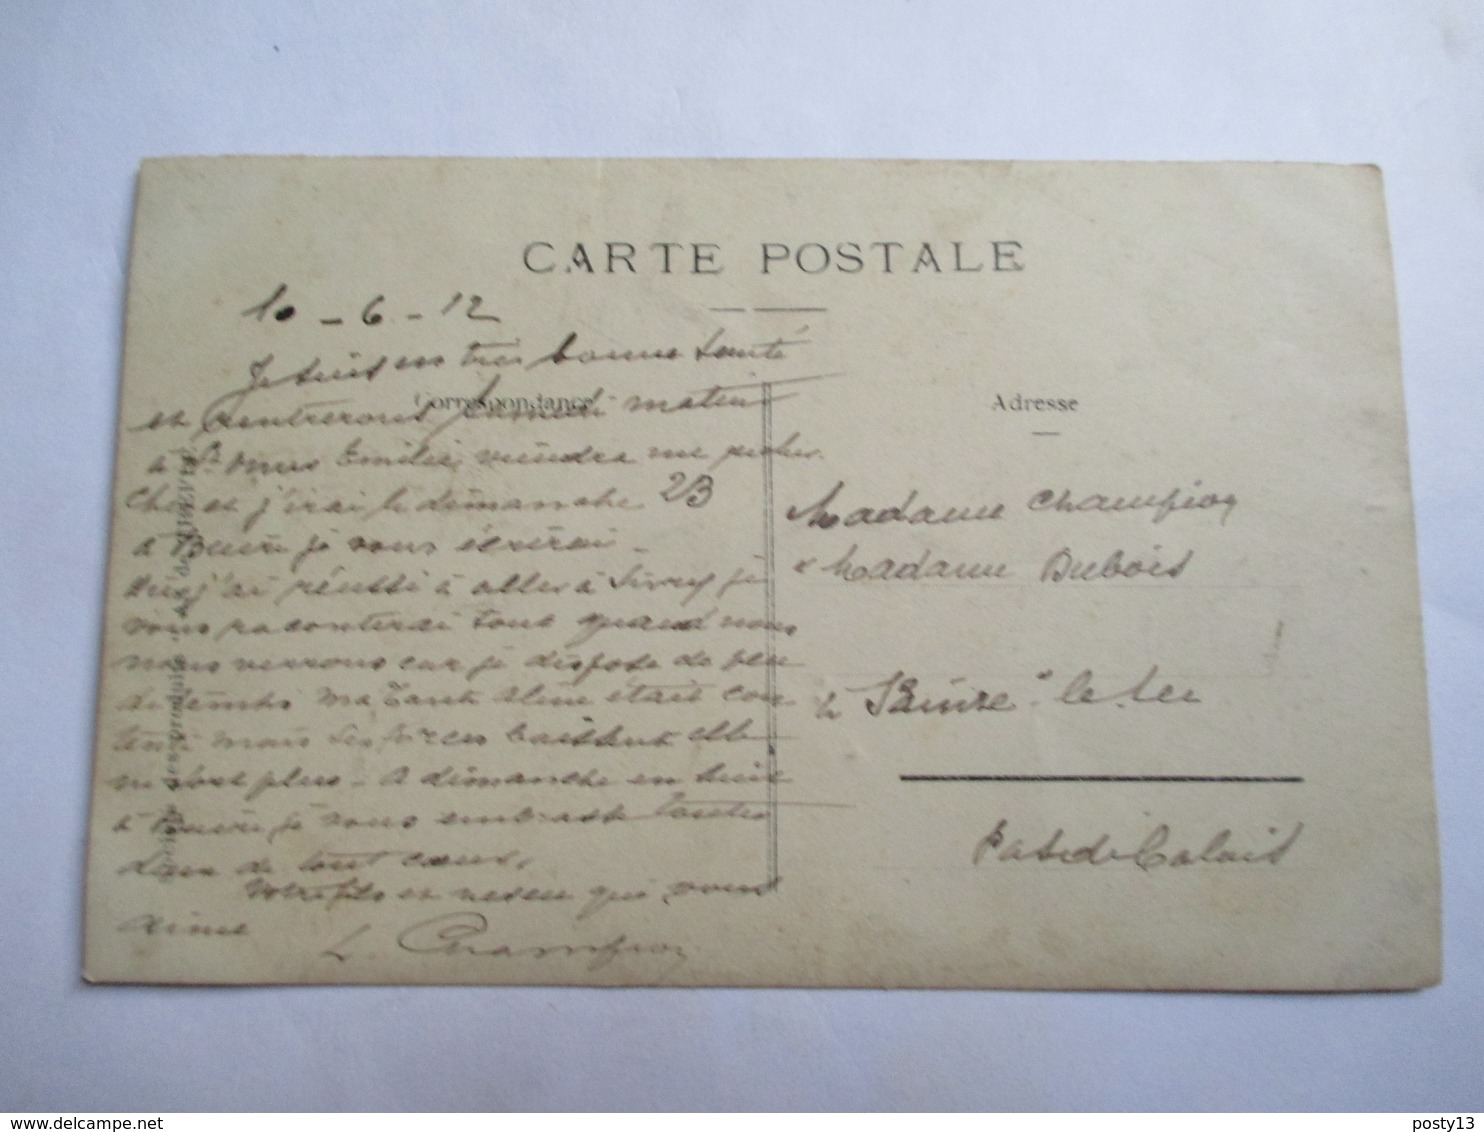 CARTE POSTALE
10 - 6 - 12
Je suis en très bonne santé
Correspondance
et rentrerons Samedi matin
à St Omer Emilie viendra me
et j'irai le dimanche 23
à je vous écrirai
j'ai réussi à aller à je
vous raconterai tout quand nous
nous verrons car je dispose de peu
de temps ma Tante Aline était con-
tente mais ses forces baissent elle
ne sort plus - A dimanche en huit
à je vous embrasse toutes
deux de tout cœur.
Votre fils et neveu qui vous
aime
L. Champion
Adresse
Madame Champion
Madame Dubois
à
Pas de Calais
posty13